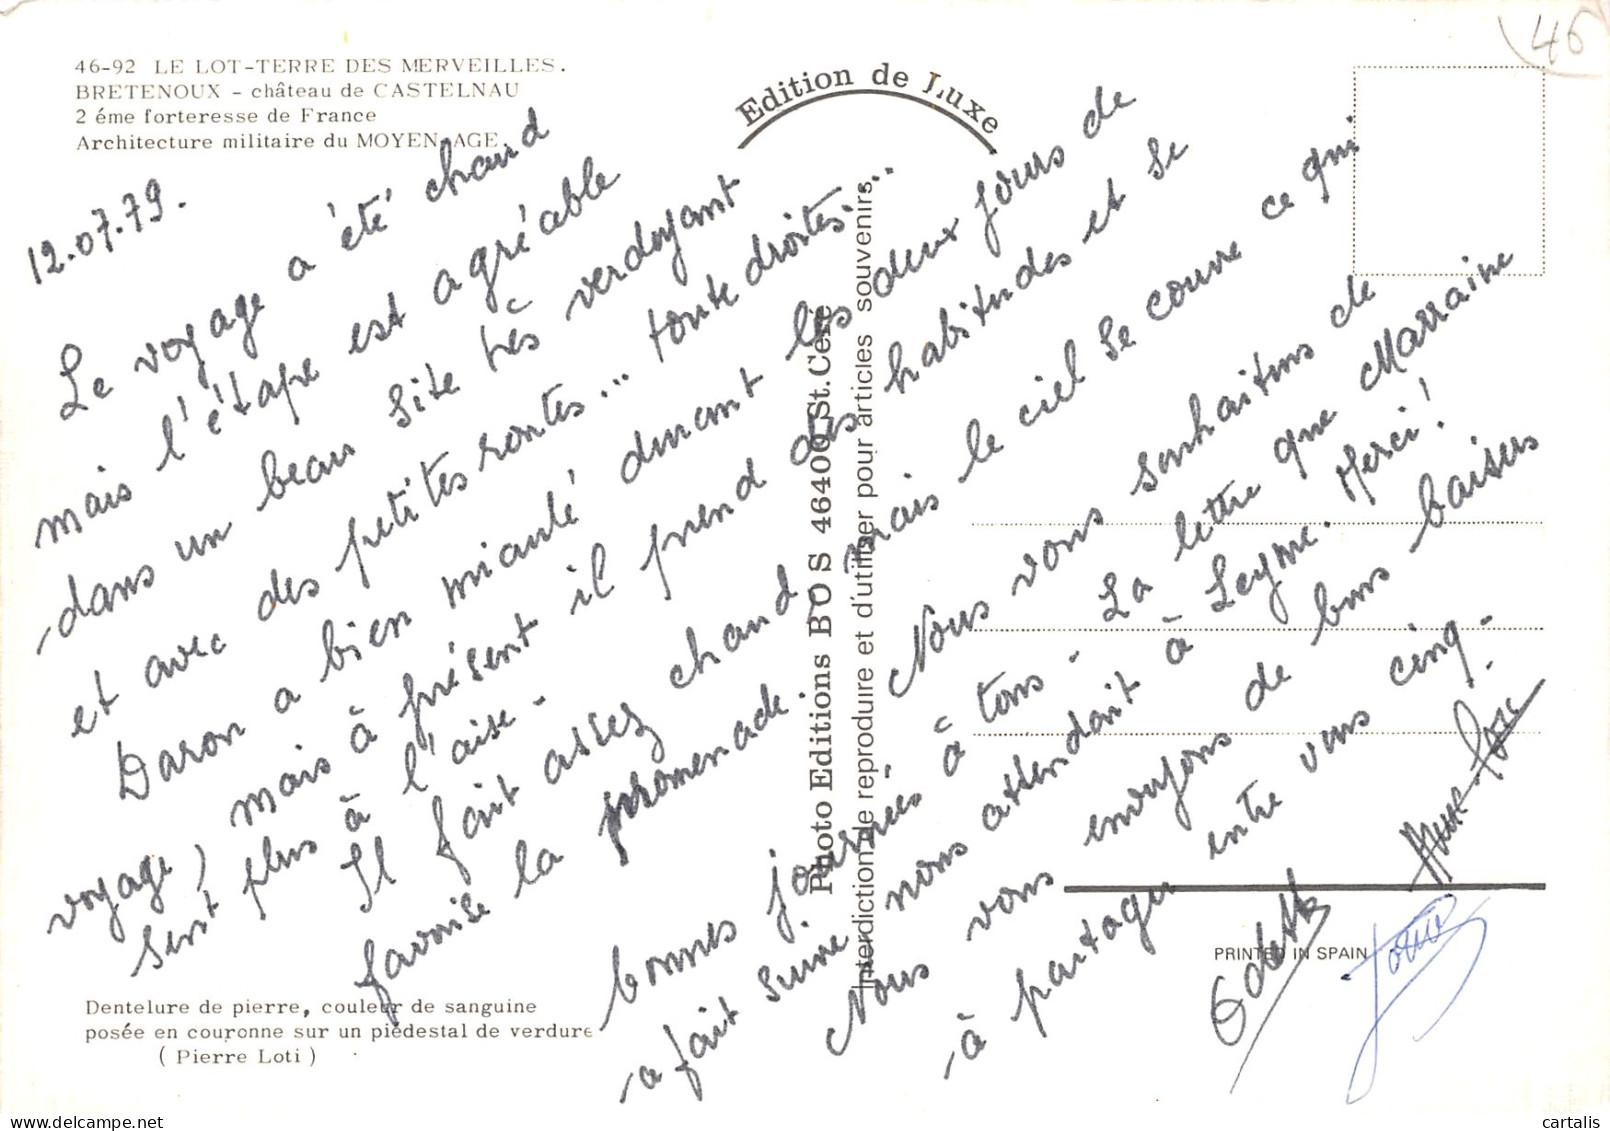 46-92 LE LOT-TERRE DES MERVEILLES.
BRETENOUX - château de CASTELNAU
2 éme forteresse de France
Architecture militaire du MOYEN-AGE.
Edition de Luxe
46
12.07.79.
Le voyage a été chaud
mais l'étape est agréable
dans un beau site très verdoyant
et avec des petites routes... toute droites....
Daron a bien miaulé durant les deux jours de
voyage, mais à présent il prend des habitudes et se
sent plus à l'aise.
Il fait assez chaud, mais le ciel se couvre ce qui
favorise la promenade.
Nous vous souhaitons de
bonnes journées à tous. La lettre que Marraine
a fait suivre nous attendait à Leyme. Merci!
Nous vous envoyons de bons baisers
à partager entre vous cinq.
Odette
Photo Editions BOS 46400 St. Céré
Interdiction de reproduire et d'utiliser pour articles souvenirs.
PRINTED IN SPAIN
Dentelure de pierre, couleur de sanguine
posée en couronne sur un piédestal de verdure
( Pierre Loti )
cartalis